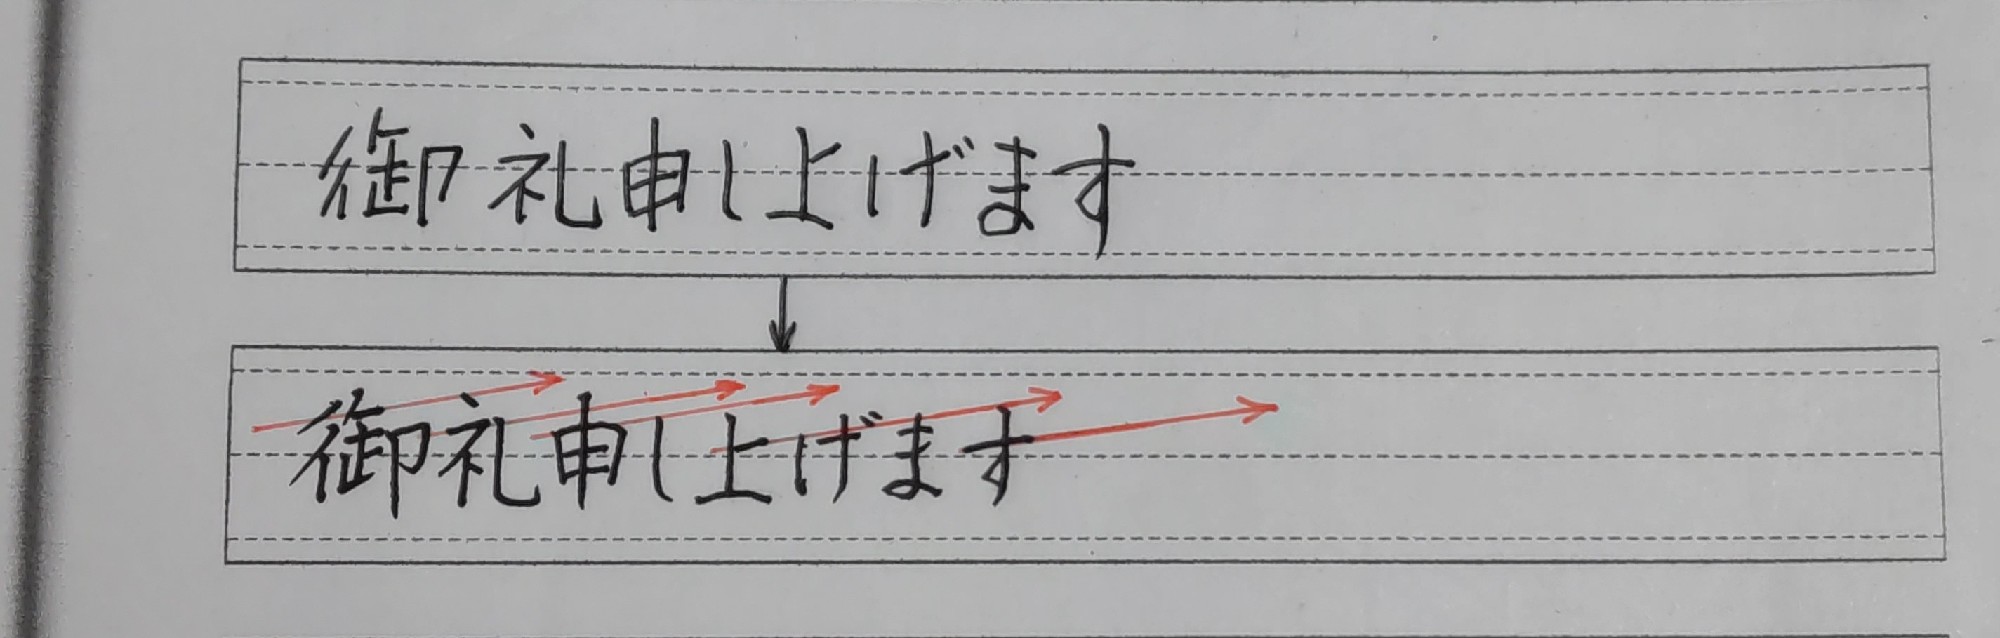 御礼申し上げます
御礼申し上げます